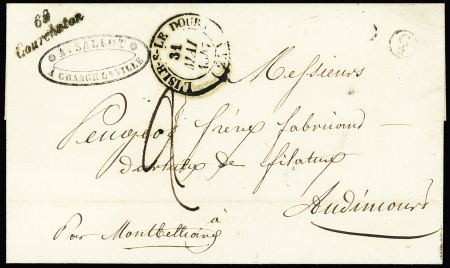 69
Courchaton
A. BALLOT
A GRANGE LA VILLE
L'ISLE-S-LE DOUBS
31
MAI
(24)
2
Messieurs
Peugeot frères fabricand
d'articles de filature
Audincourt
à
Par Montbelliard